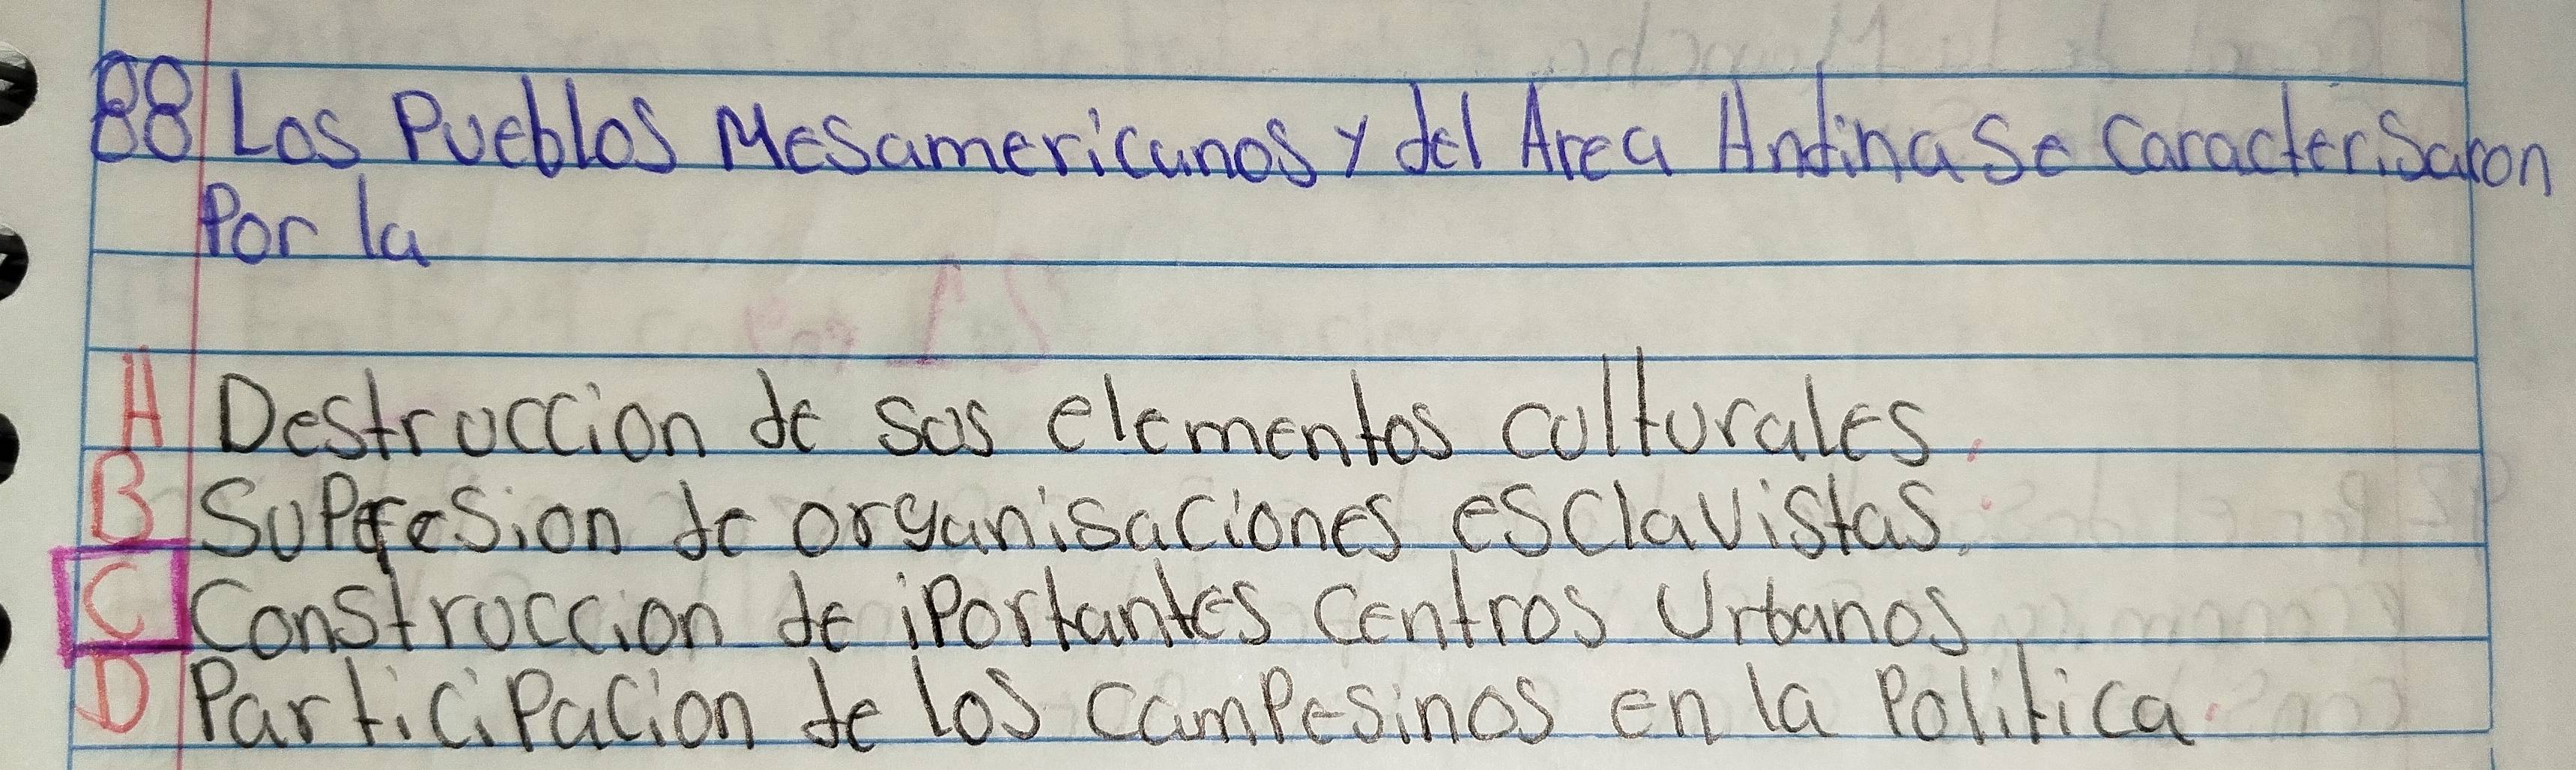 88 Los Pueblos Mesamericanos y del Area Andina se caracterisaron
Por la
A Destruccion de sus elementos culturales.
B Supresion de organisaciones esclavistas.
C Construccion de iPortantes centros Urbanos
D Participacion de los campesinos en la Politica.